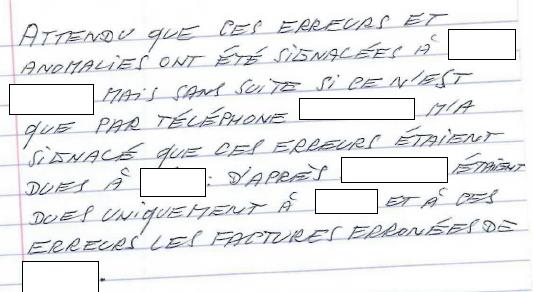 ATTENDU QUE CES ERREURS ET
ANOMALIES ONT ÉTÉ SIGNALÉES À
MAIS SANS SUITE SI CE N'EST
QUE PAR TÉLÉPHONE M'A
SIGNALÉ QUE CES ERREURS ÉTAIENT
DUES À : D'APRÈS ÉTAIENT
DUES UNIQUEMENT À ET À CES
ERREURS LES FACTURES ERRONÉES DE
.